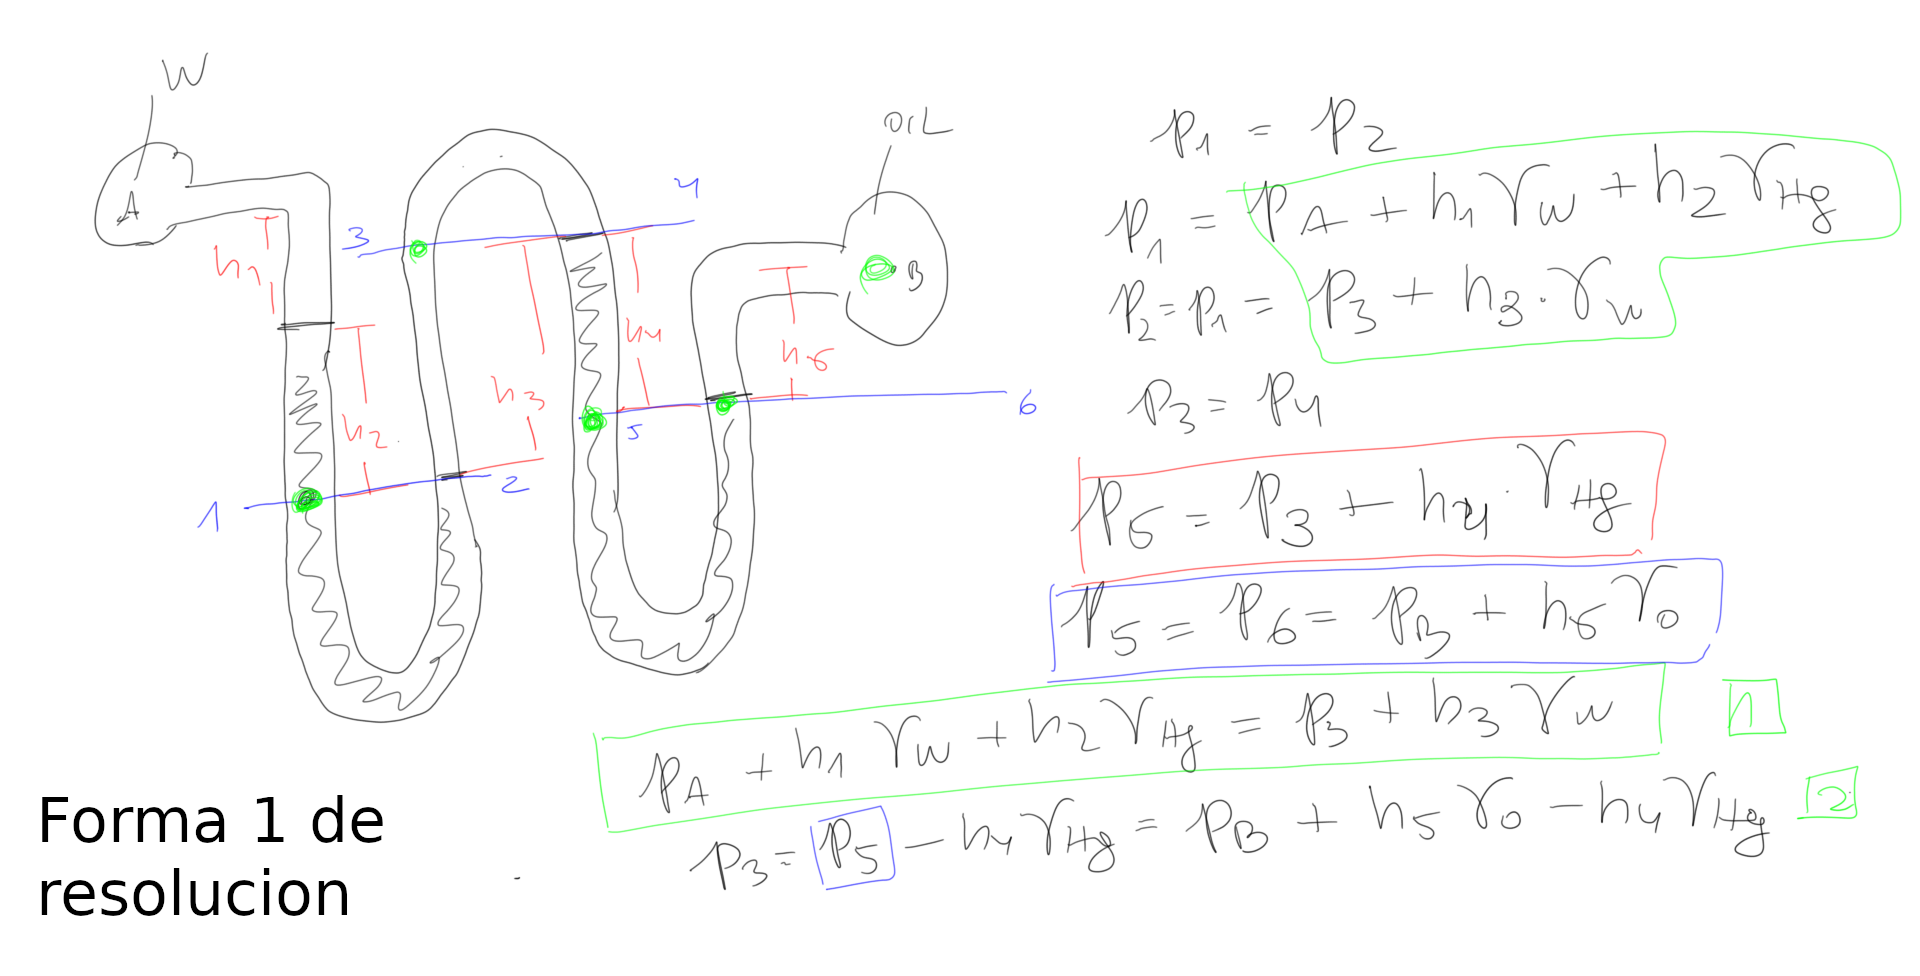 W
OIL
A
B
h₁
h₂.
h₃
h₄
h₅
1
2
3
4
5
6
p₁ = p₂
p₁ = p_A + h₁ γ_W + h₂ γ_Hg
p₂ = p₁ = p₃ + h₃ · γ_W
p₃ = p₄
p₅ = p₃ + h₄ · γ_Hg
p₅ = p₆ = p_B + h₅ γ_o
p_A + h₁ γ_W + h₂ γ_Hg = p₃ + h₃ γ_W 1
p₃ = p₅ - h₄ γ_Hg = p_B + h₅ γ_o - h₄ γ_Hg 2
Forma 1 de
resolucion